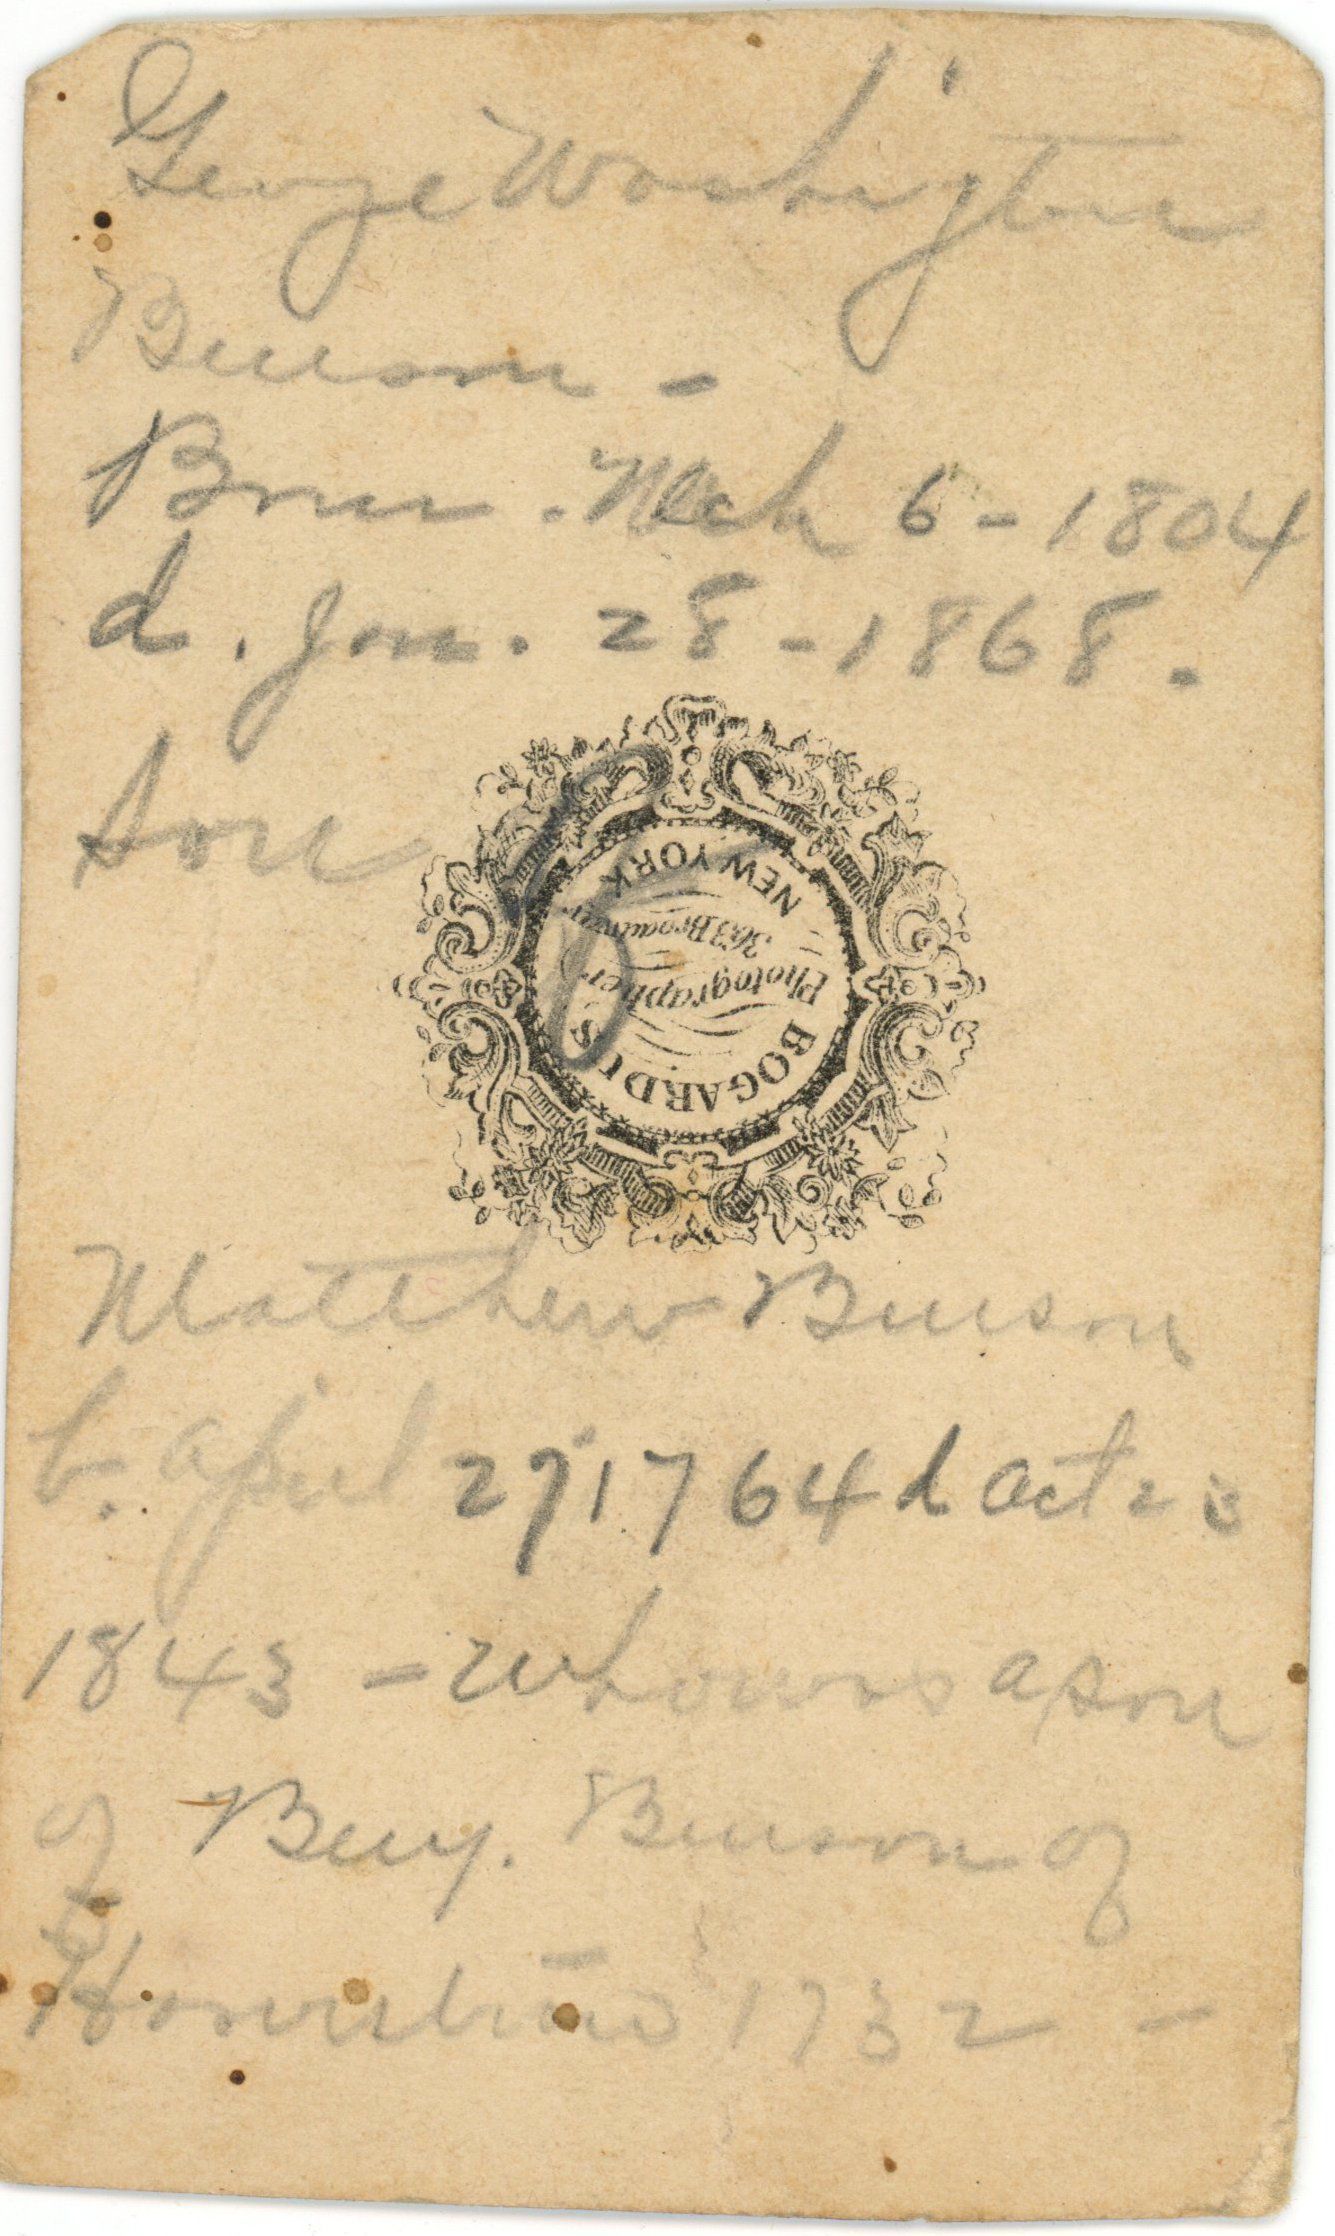 George Washington
Benson -
Born. Mch 6 - 1804
d. Jan. 28 - 1868.
Son of
BOGARDUS
Photographer
363 Broadway
NEW YORK
Matthew Benson
b. April 27 1764 d Oct 23
1843 - who was a son
of Benj. Benson of
1732 -